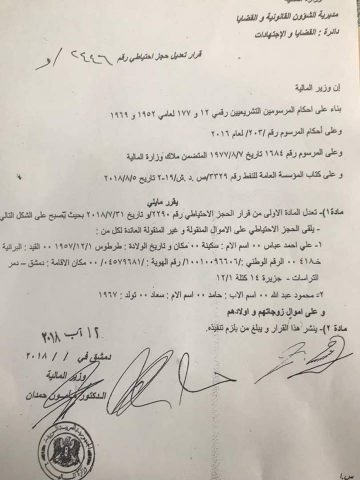 مديرية الشؤون القانونية و القضايا
دائرة : القضايا و الإجتهادات
قرار تعديل حجز احتياطي رقم ٢٤٤٦ /و
إن وزير المالية
بناء على احكام المرسومين التشريعيين رقمي ١٢ و ١٧٧ لعامي ١٩٥٢ و ١٩٦٩
وعلى أحكام المرسوم رقم /٢٠٣/ لعام ٢٠١٦
وعلى المرسوم رقم ١٦٨٤ تاريخ ١٩٧٧/٨/٧ المتضمن ملاك وزارة المالية
و على كتاب المؤسسة العامة للنفط رقم ٣٣٢٩/ص . د .ش/١٩-٢ تاريخ ٢٠١٨/٨/٥
يقرر مايلي
مادة ١)- تعدل المادة الاولى من قرار الحجز الاحتياطي رقم ٢٢٩٠/و تاريخ ٢٠١٨/٧/٣١ بحيث تصبح على الشكل التالي
يلقى الحجز الاحتياطي على الاموال المنقولة و غير المنقولة العائدة لكل من :
١- علي احمد عباس ٠٠ اسم الام : سكينة ٠٠ مكان و تاريخ الولادة : طرطوس ١٩٥٧/١٢/١ ٠٠ القيد : البرانية
خ٤١٨ ٠٠ الرقم الوطني : /١٠٠١٠٠٩٦٦٠٦/ ٠٠ رقم الهوية : /٠٤٥٧٩٦٨١/ ٠٠ مكان الاقامة : دمشق – دمر
التراسات - جزيرة ١٤ كتلة ١٢/١
٢- محمود عبد الله ٠٠ اسم الاب : حامد ٠٠ اسم الام : سعاد ٠٠ تولد : ١٩٦٧
و على اموال زوجاتهم و اولادهم
مادة ٢)- ينشر هذا القرار و يبلغ من يلزم تنفيذه.
٢/ آب ٢٠١٨
دمشق في / / ٢٠١٨
وزير المالية
الدكتور مأمون حمدان